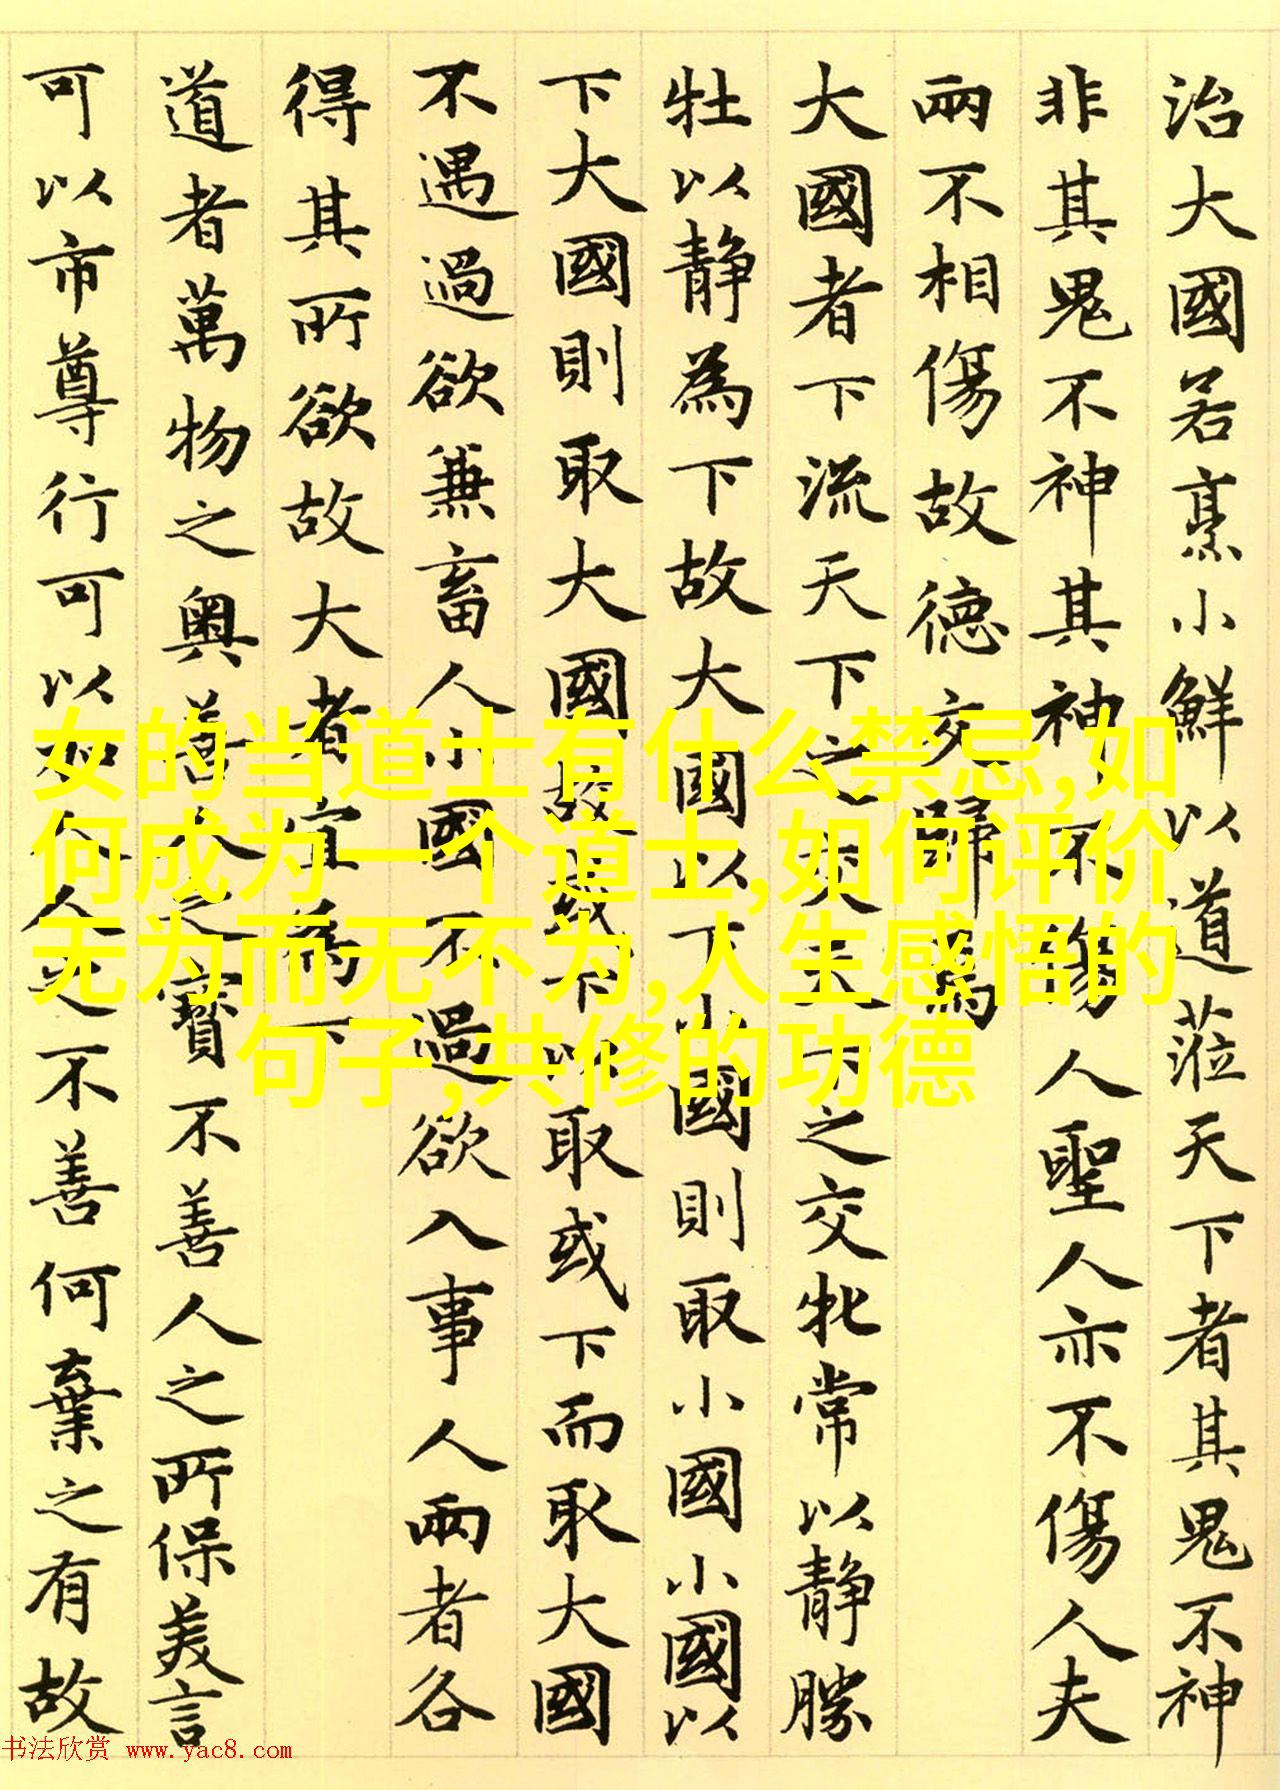 治大國若烹小鮮以道蒞天下者其鬼不神
非其鬼不神其神不傷人聖人亦不傷人夫
兩不相傷故德交歸焉
大國者下流天下之交天下之交牝常以靜勝
牡以靜為下故大國以下小國則取小國小國以
下大國則取大國故或下以取或下而取大國
不遇過欲兼畜人小國不過欲入事人兩者各
得其所欲故大者宜為下
道者萬物之奧善人之寶不善人之所保美言
可以市尊行可以加人人之不善何棄之有故
女的当道士有什么禁忌,如
何成为一个道士,如何评价
无为而无不为,人生感悟的
句子,共修的功德
书法欣赏 www.yac8.com